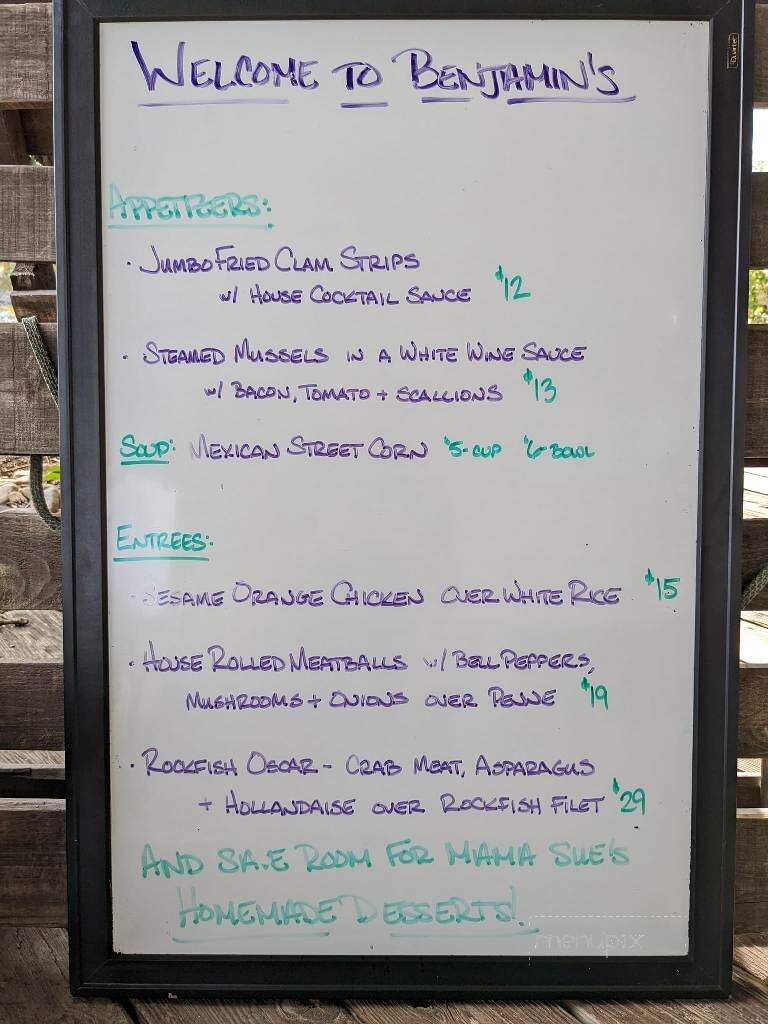 WELCOME TO BENJAMIN'S
APPETIZERS:
· JUMBO FRIED CLAM STRIPS
w/ HOUSE COCKTAIL SAUCE $12
· STEAMED MUSSELS IN A WHITE WINE SAUCE
w/ BACON, TOMATO + SCALLIONS $13
SOUP: MEXICAN STREET CORN $5-CUP $6-BOWL
ENTREES:
· SESAME ORANGE CHICKEN OVER WHITE RICE $15
· HOUSE ROLLED MEATBALLS w/ BELL PEPPERS,
MUSHROOMS + ONIONS OVER PENNE $19
· ROCKFISH OSCAR - CRAB MEAT, ASPARAGUS
+ HOLLANDAISE OVER ROCKFISH FILET $29
AND SAVE ROOM FOR MAMA SUE'S
HOMEMADE DESSERTS!
menupix